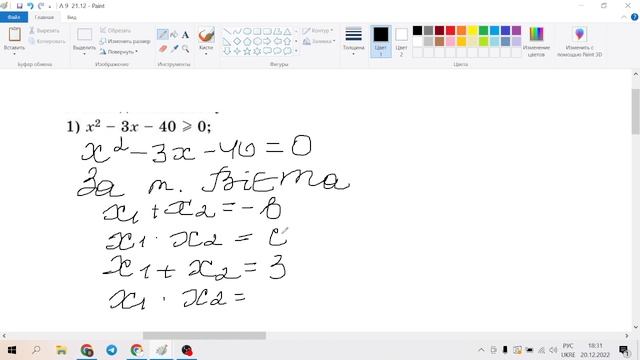 А 9 21.12 - Paint
Файл Главная Вид
Вставить
Вырезать
Копировать
Буфер обмена
Выделить
Обрезать
Изменить размер
Повернуть
Изображение
Инструменты
Кисти
Контур
Заливка
Фигуры
Толщина
Цвет 1
Цвет 2
Цвета
Изменение цветов
Изменить с помощью Paint 3D
1) x² − 3x − 40 ⩾ 0;
x² − 3x − 40 = 0
За т. Вієта
x₁ + x₂ = −b
x₁ · x₂ = c
x₁ + x₂ = 3
x₁ · x₂ =
РУС
UKRE
18:31
20.12.2022